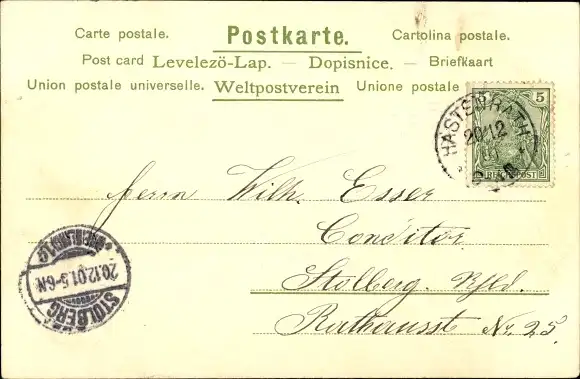 Carte postale. Postkarte. Cartolina postale.
Post card Levelezö-Lap. — Dopisnice. — Briefkaart
Union postale universelle. Weltpostverein Unione postale
5
REICHSPOST
HASTENRATH
20/12
Herrn Wilh. Esser
Conditor
Stolberg. Rhld.
Rathausst Nr. 25.
STOLBERG
20.12.01.5-6N
(RHEINLAND)